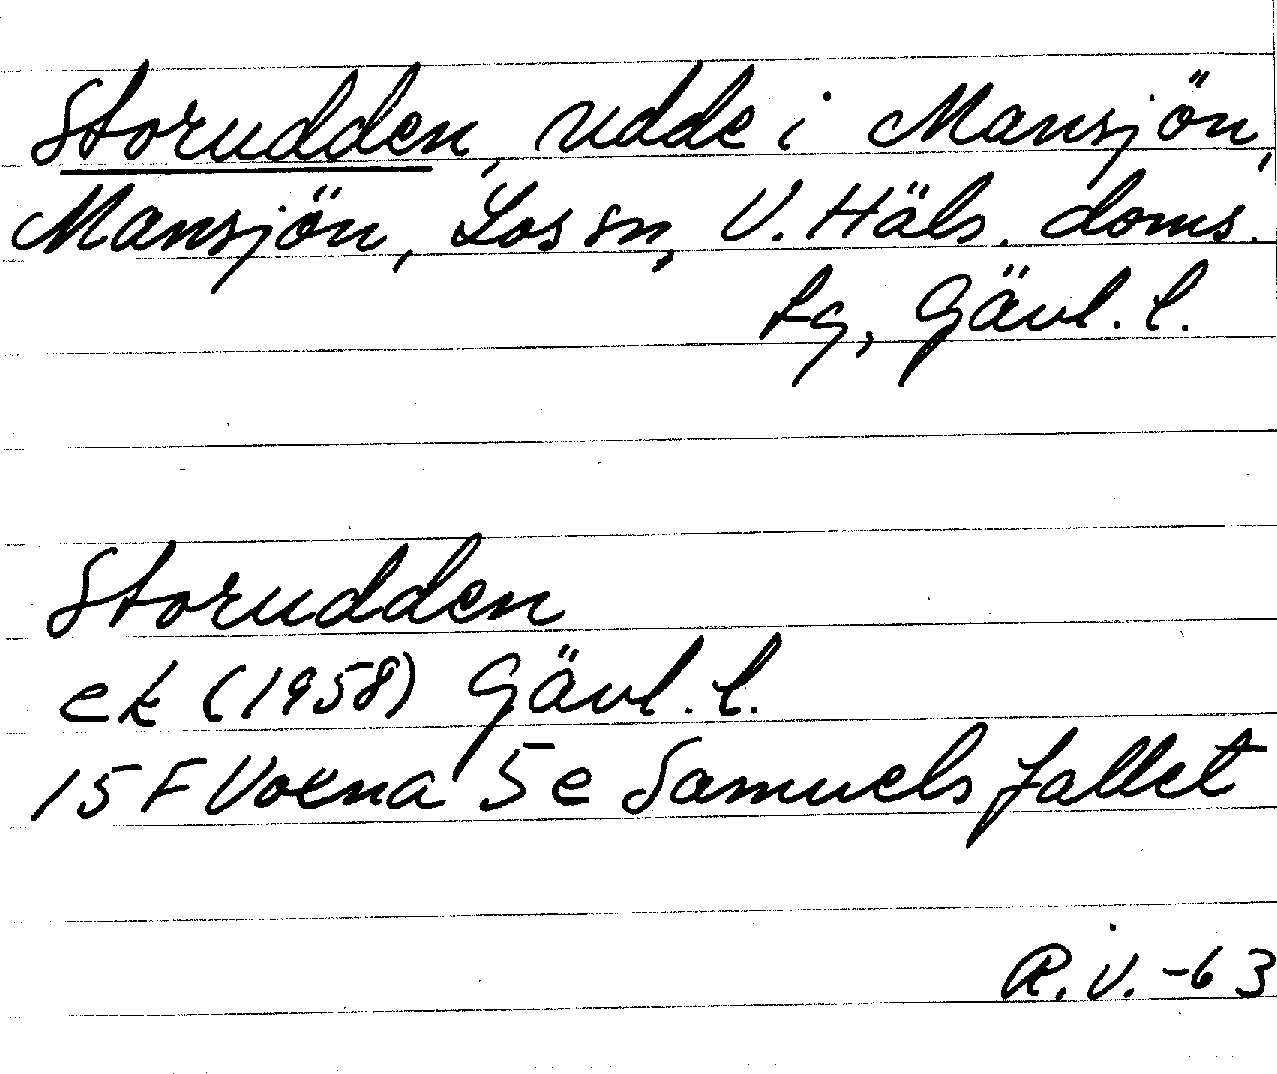 Storudden, udde i Mansjön,
Mansjön, Los sn, V. Häls. doms.
fg, Gävl. l.
Storudden
ek (1958) Gävl. l.
15 F Voxna 5 e Samuelsfallet
R.V. -63